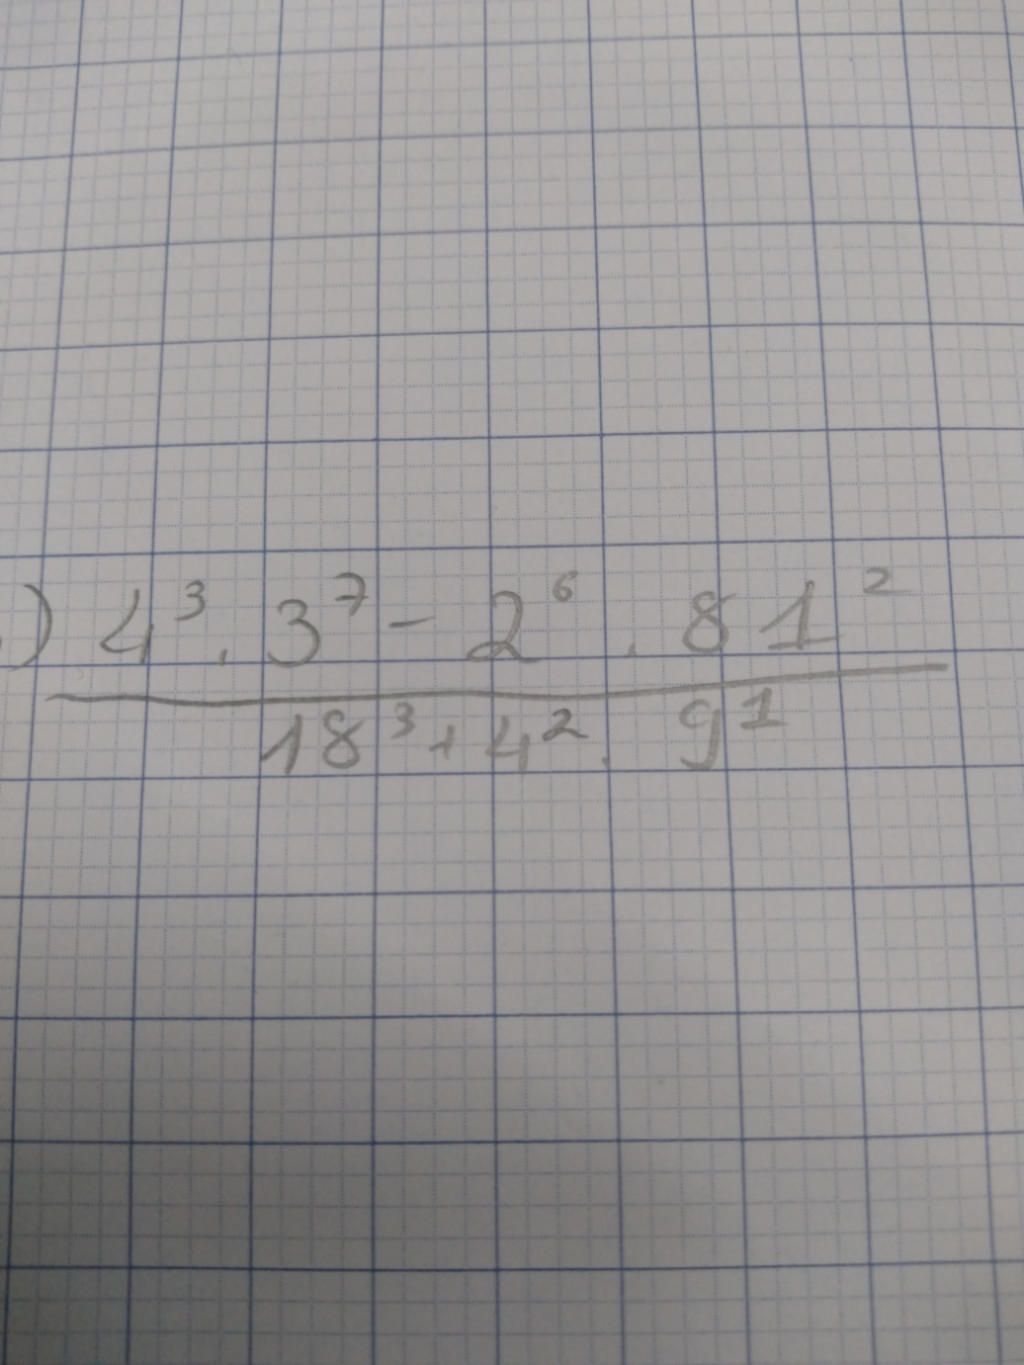 ) 4³ . 3⁷ - 2⁶ . 81²
18³ + 4² . 9¹